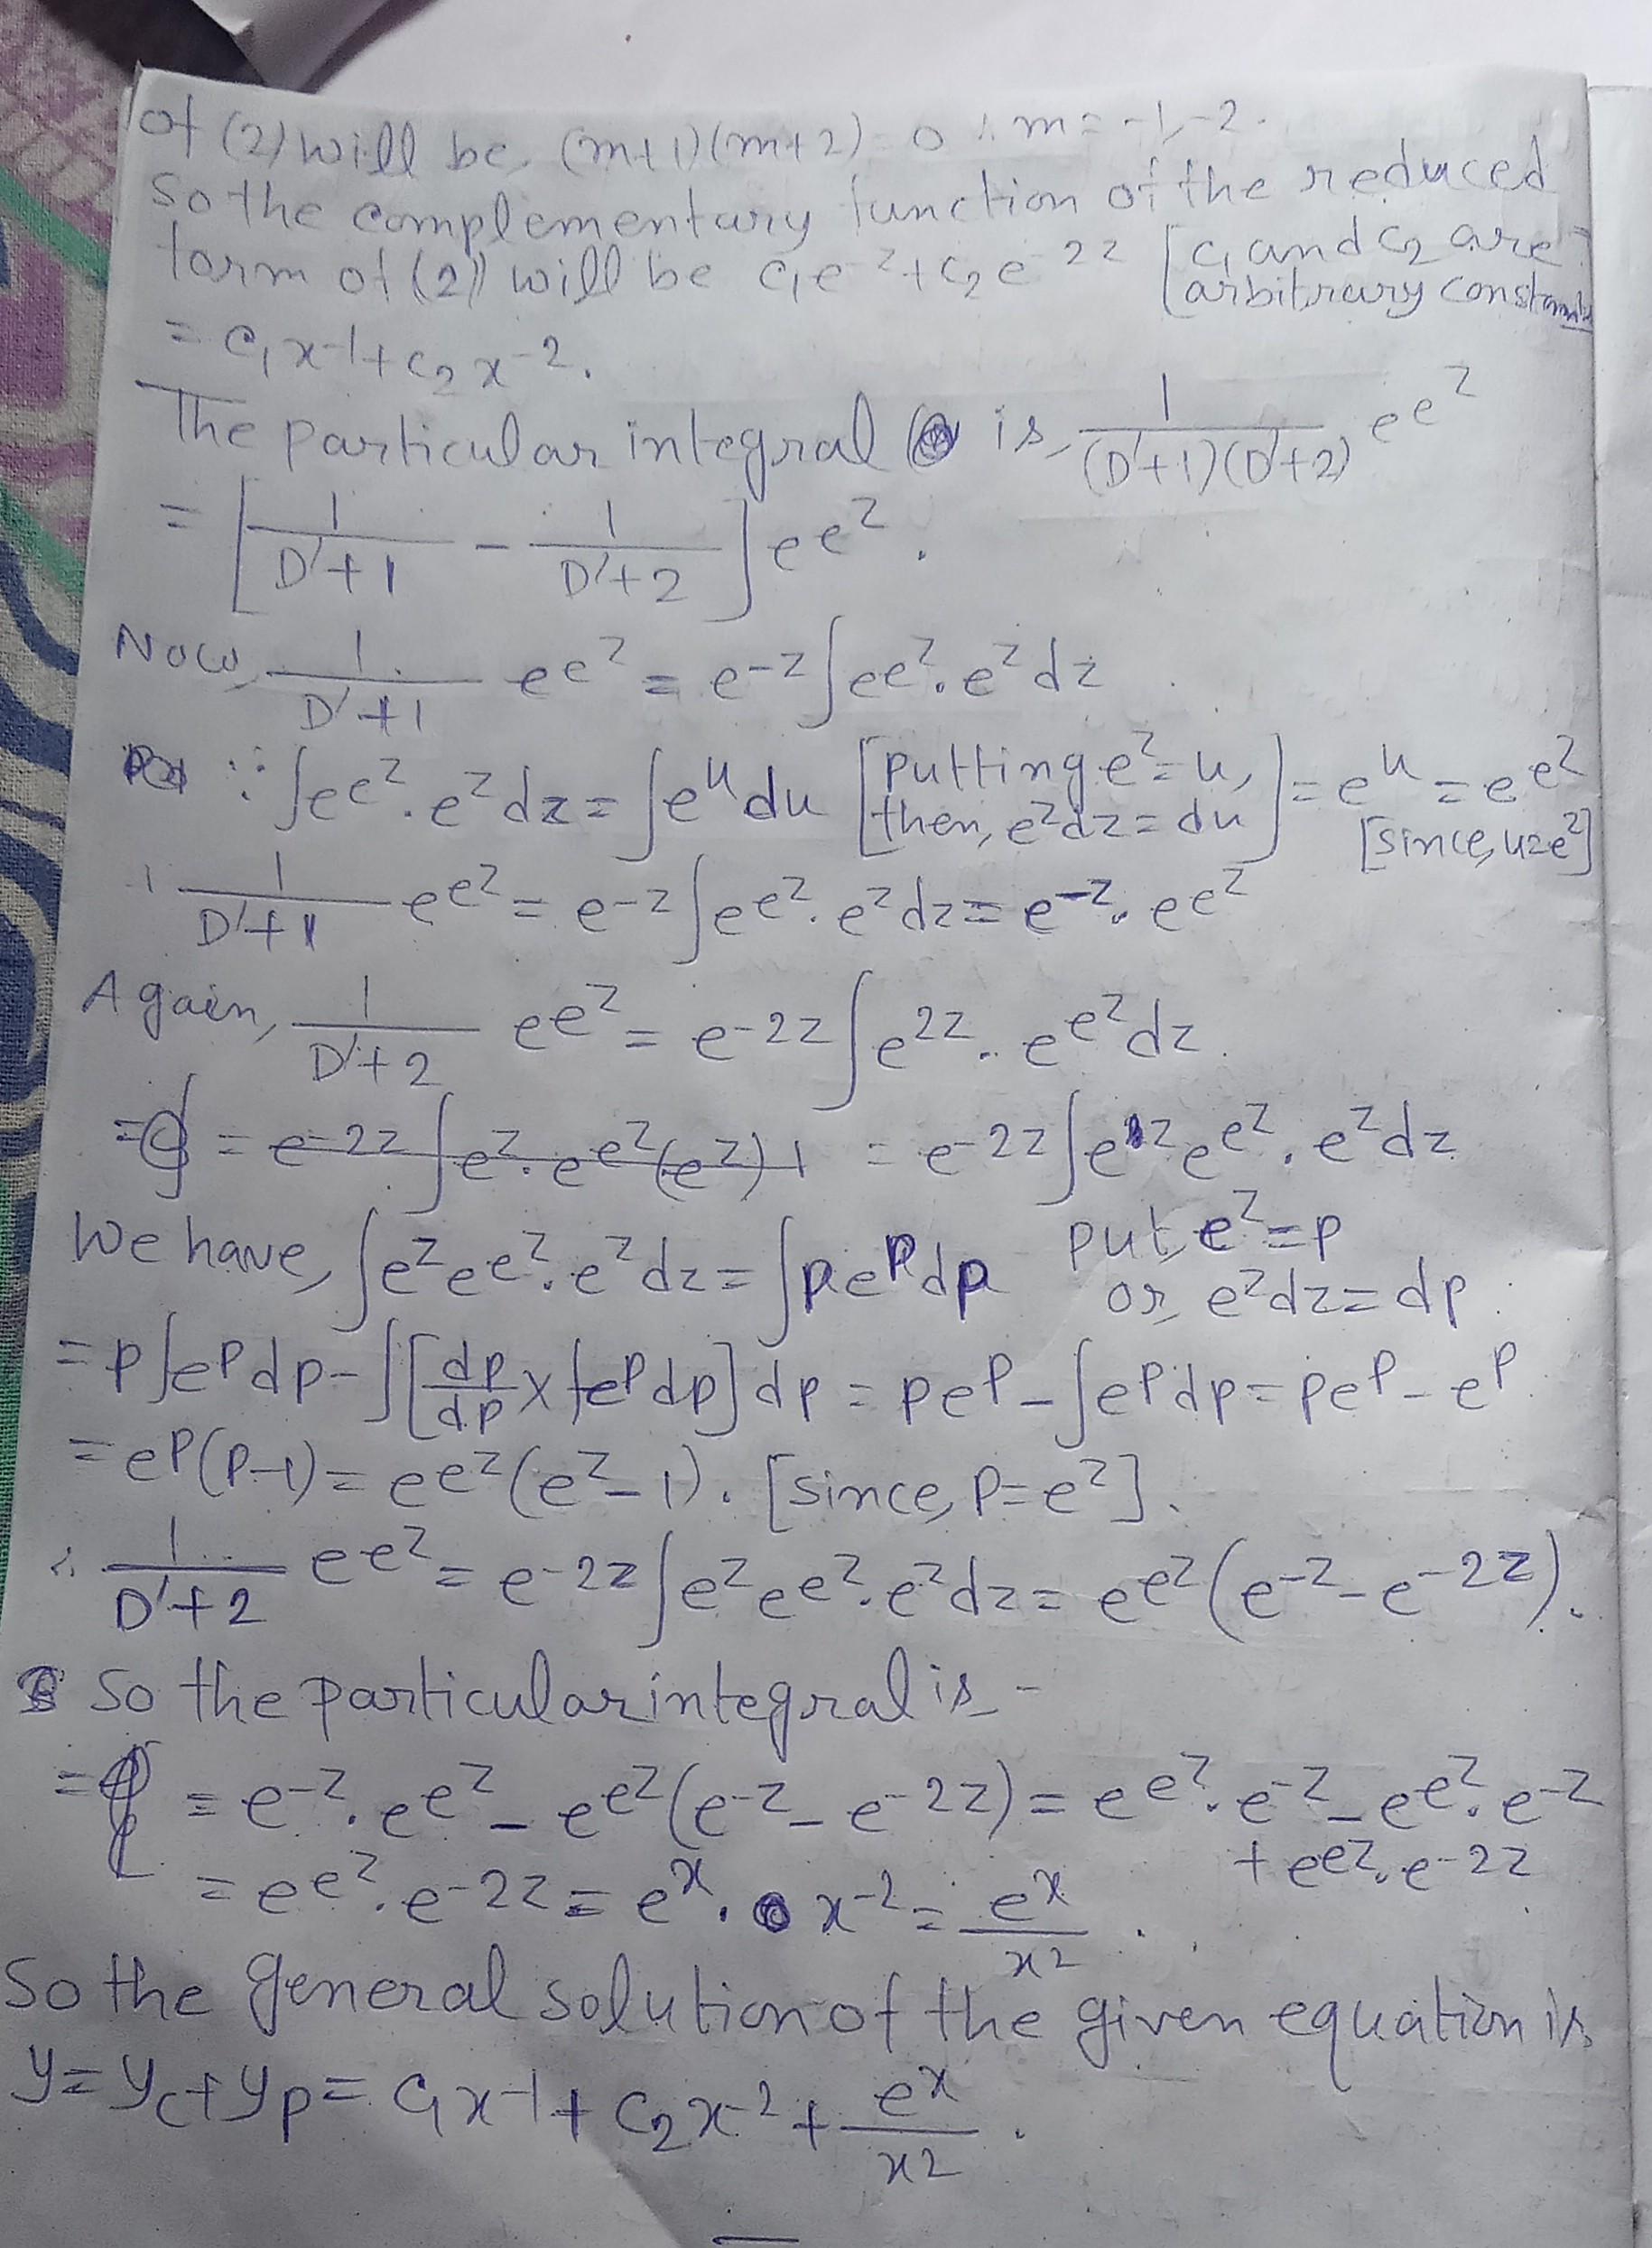 of (2) will be, (m+1)(m+2)=0 ∴ m=-1,-2.
So the complementary function of the reduced
form of (2) will be c₁e^-z+c₂e^-2z [c₁ and c₂ are
arbitrary constants
= c₁x^-1+c₂x^-2.
The particular integral is, 1/((D'+1)(D'+2)) e^e^z
= [1/(D'+1) - 1/(D'+2)] e^e^z.
Now, 1/(D'+1) e^e^z = e^-z∫e^e^z.e^z dz
∵ ∫e^e^z.e^z dz = ∫e^u du [putting e^z=u, then, e^z dz=du] = e^u = e^e^z
[since, u=e^z]
1/(D'+1) e^e^z = e^-z∫e^e^z.e^z dz = e^-z.e^e^z
Again, 1/(D'+2) e^e^z = e^-2z∫e^2z.e^e^z dz.
= e^-2z∫e^z.e^e^z(e^z)1 = e^-2z∫e^z e^e^z.e^z dz
We have, ∫e^z e^e^z.e^z dz = ∫pe^p dp put, e^z=p
or, e^z dz=dp.
= p∫e^p dp-∫[dp/dp×∫e^p dp]dp = pe^p-∫e^p dp = pe^p-e^p
= e^p(p-1) = e^e^z(e^z-1). [since, p=e^z].
∴ 1/(D'+2) e^e^z = e^-2z∫e^z e^e^z.e^z dz = e^e^z(e^-z-e^-2z).
So the particular integral is -
= e^-z.e^e^z-e^e^z(e^-z-e^-2z) = e^e^z.e^-z-e^e^z.e^-z
+e^e^z.e^-2z
= e^e^z.e^-2z = e^x.x^-2 = e^x/x^2.
So the general solution of the given equation is
y=y_c+y_p= c₁x^-1+c₂x^-2+e^x/x^2.